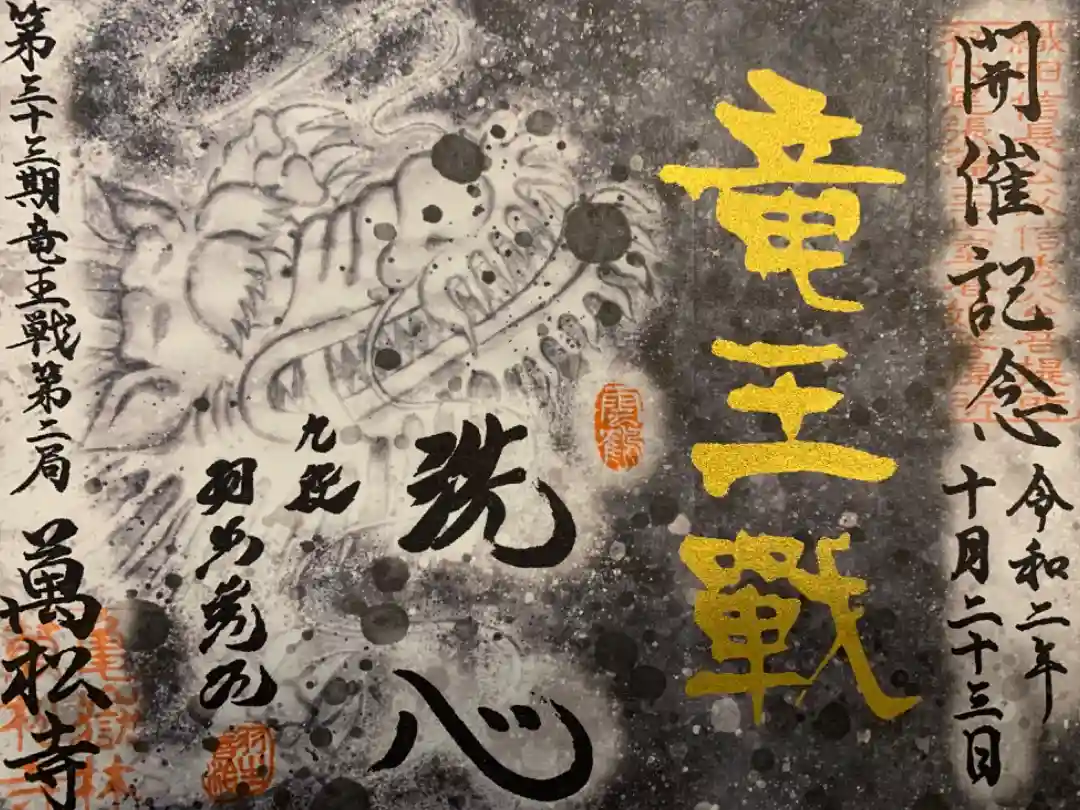 開催記念
令和二年
十月二十三日
竜王戰
雲鶴
洗心
九段
羽生善治
第三十三期竜王戦第二局
萬松寺